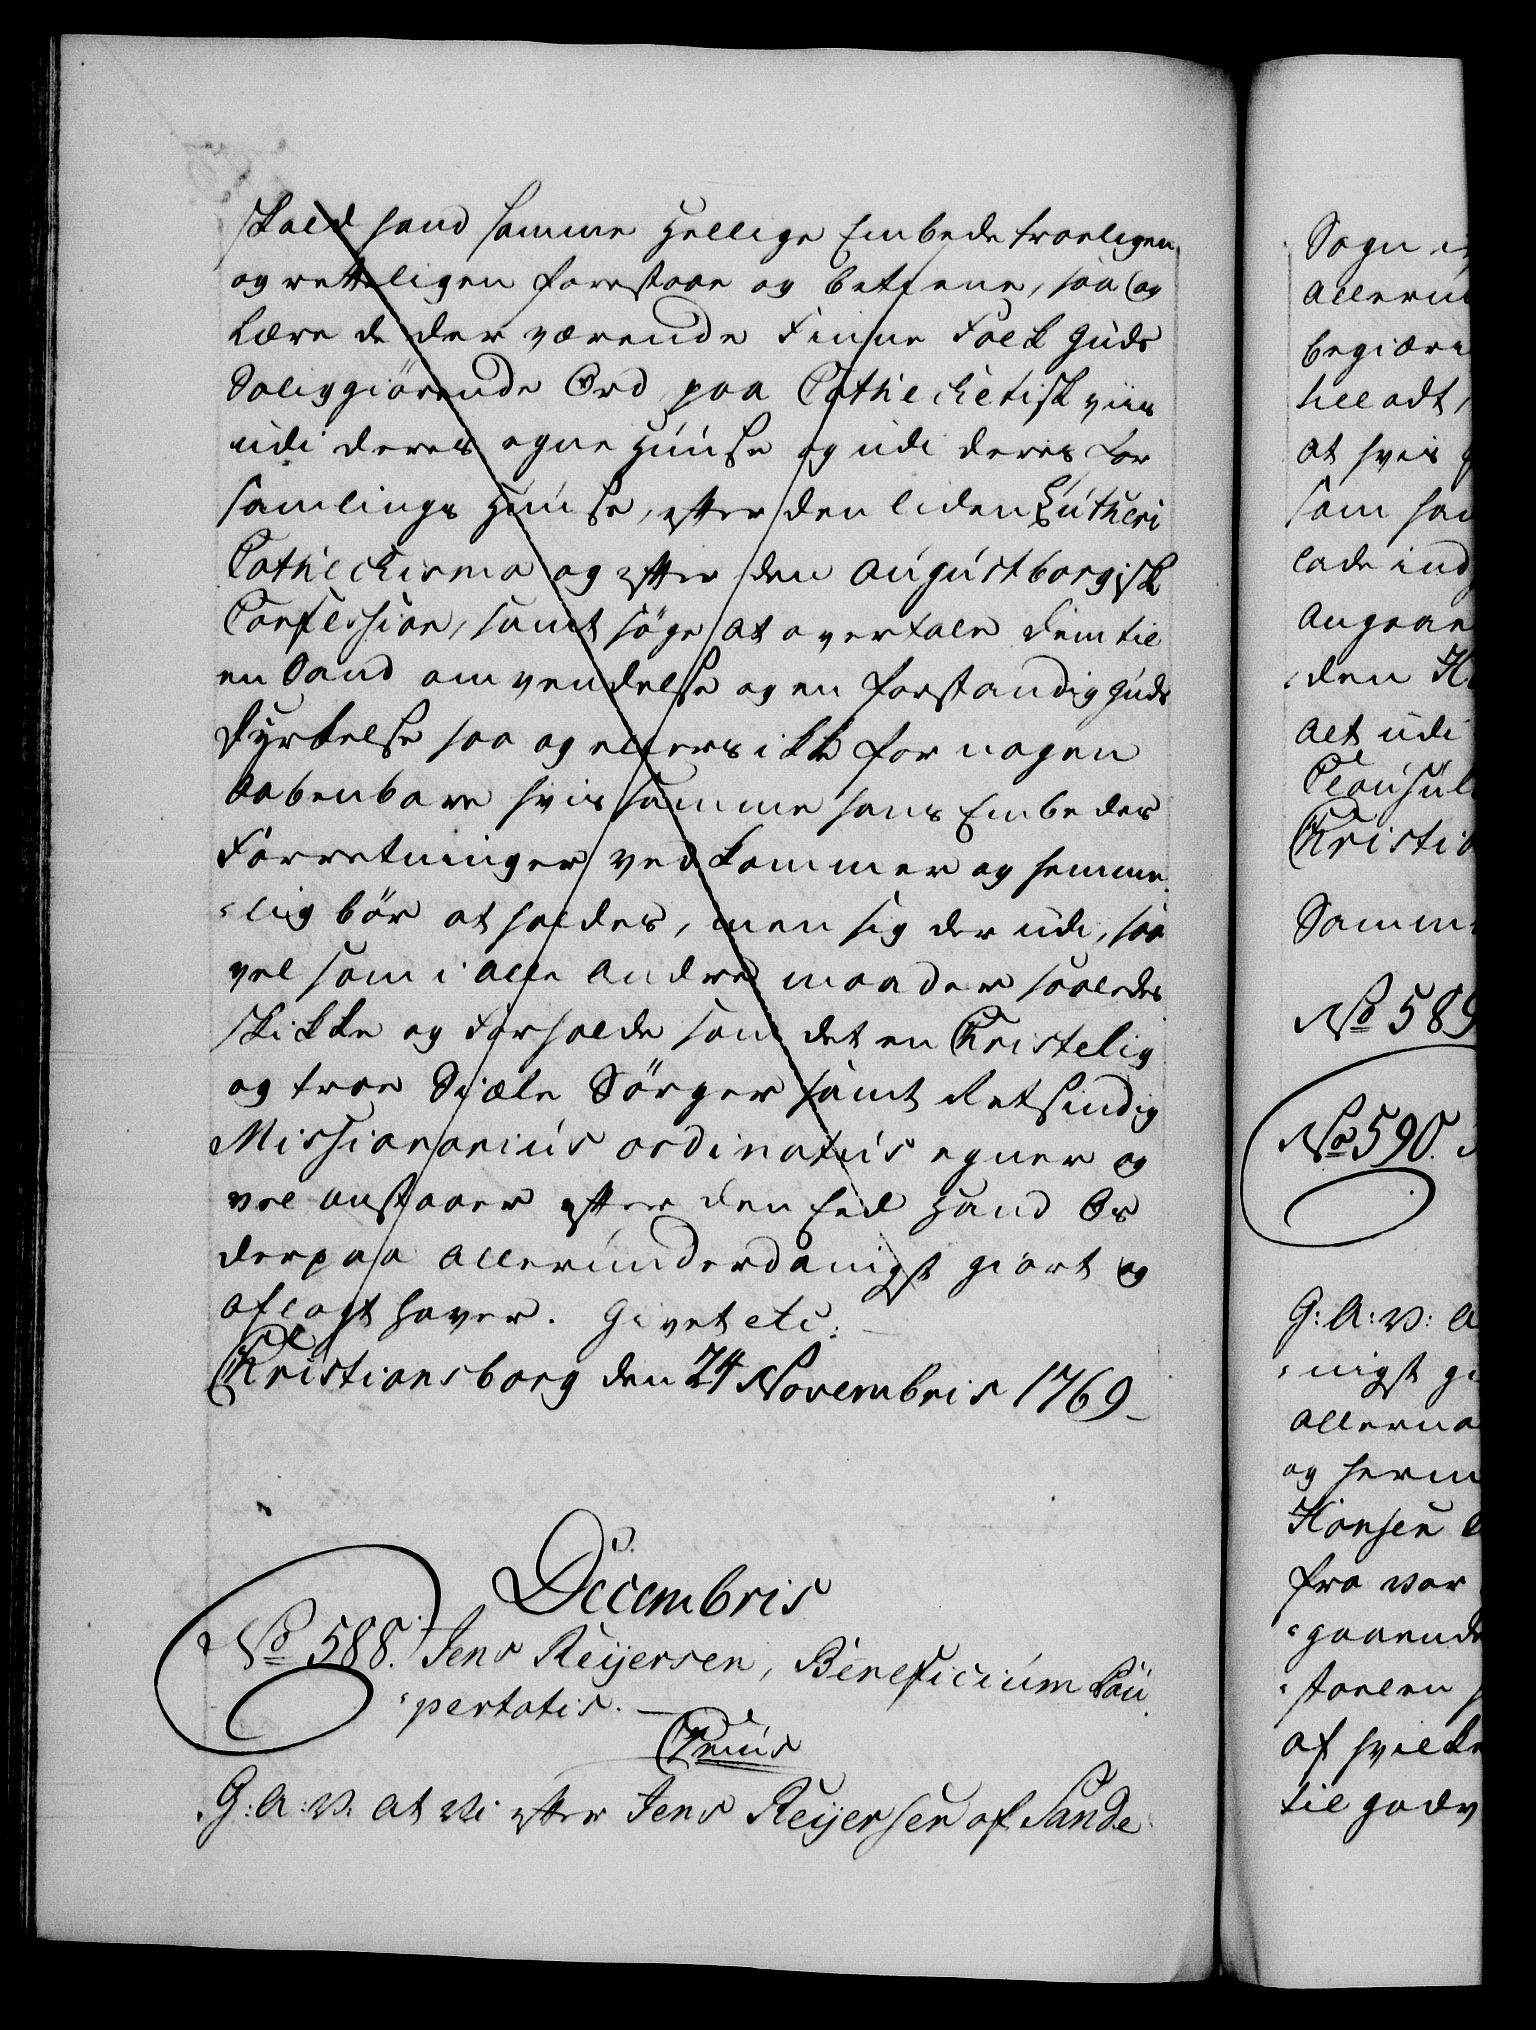 skal hand samme Hellige Embede troeligen
og retteligen forestaae og betiene, saa og
Lære de der værende Finne Folk Guds
Saliggiørende Ord paa Cathechetisk viis
udi deres egne Huuse og udi deres For
samlings Huuse, efter den liden Lutheri
Cathechismo og efter den Augustborgisk
Confession, samt søge at overtale dem til
en Sand omvendelse og en forstandig Guds
Dyrkelse saa og ellers ikke for nogen
Aabenbare hvis samme hans Embedes
Forretninger vedkommer og hemme
lig bør at holdes, men sig der udi, saa
vel som i Alle Andre maader saaledes
skikke og Forholde som det en Christelig
og troe Siæle Sørger samt Retsindig
Missionarius ordinatus egner og
vel anstaaer efter den Eed Hand Os
derpaa Allerunderdanigst giort og
aflagt haver. Givet etc:
Christiansborg den 24 Novembris 1769
Decembris
No 588. Jens Reijersen, Beneficium Pau
pertatis.
Cruus
G: A: V: At Vi efter Jens Reijersen af Sande
Sogn i
Allerun
begiære
til at hvis
som ha
lade ind
Angaae
den H
Alt udi
Clausul
Christia
Samm
No 589
No 590.
G: A: V: A
nigst gi
Allerna
og herm
Hansen
fra vor
gaaende
stoelen
af hvilke
til godv